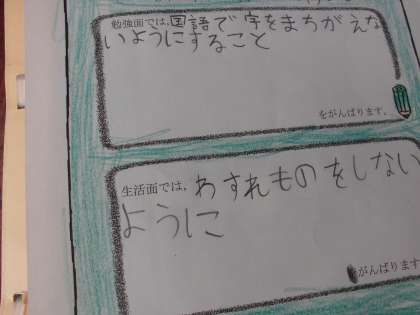 勉強面では,国語で字をまちがえな
いようにすること
をがんばります。
生活面では,わすれものをしない
ように
がんばります